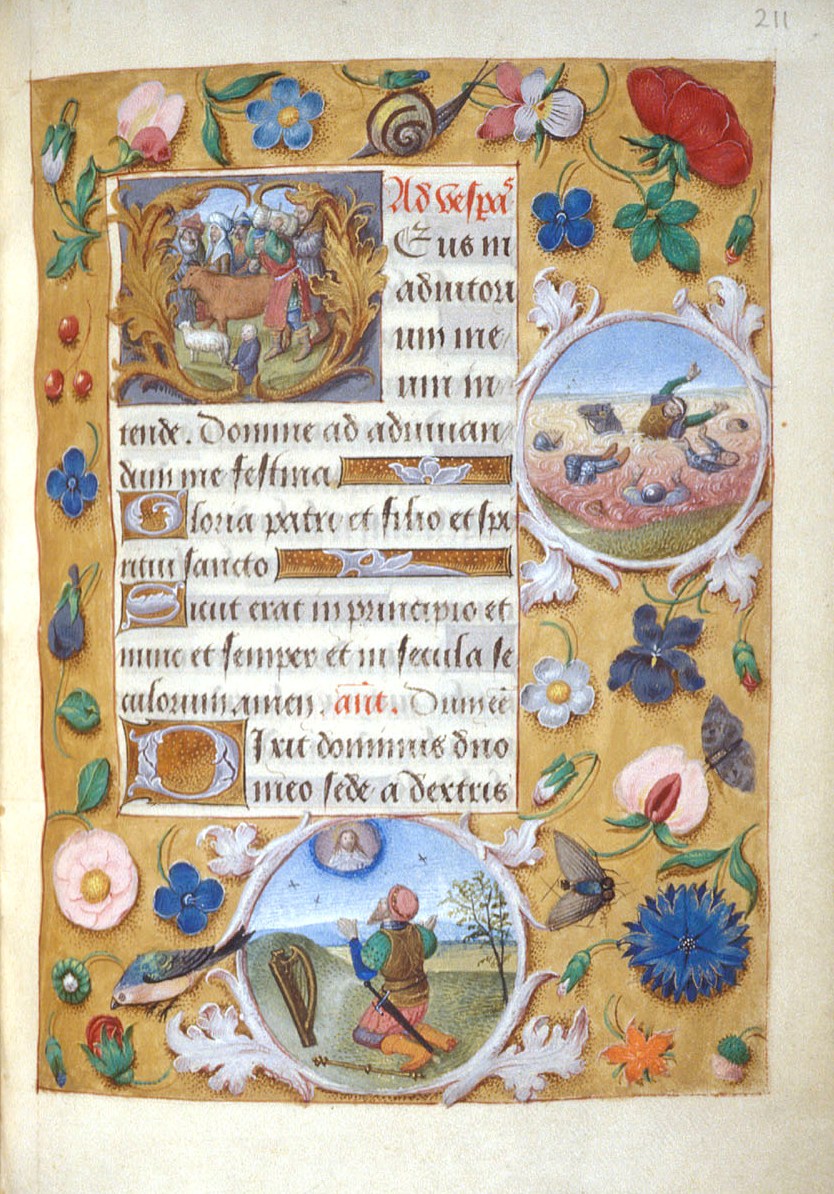 211
Ad vesperas
Eus in
adiutori
um me
um in
tende. Domine ad adiuuan
dum me festina
Gloria patri et filio et spi
ritui sancto
Sicut erat in principio et
nunc et semper et in secula se
culorum amen. ant. Dum eēt
Dixit dominus dno
meo sede a dextris